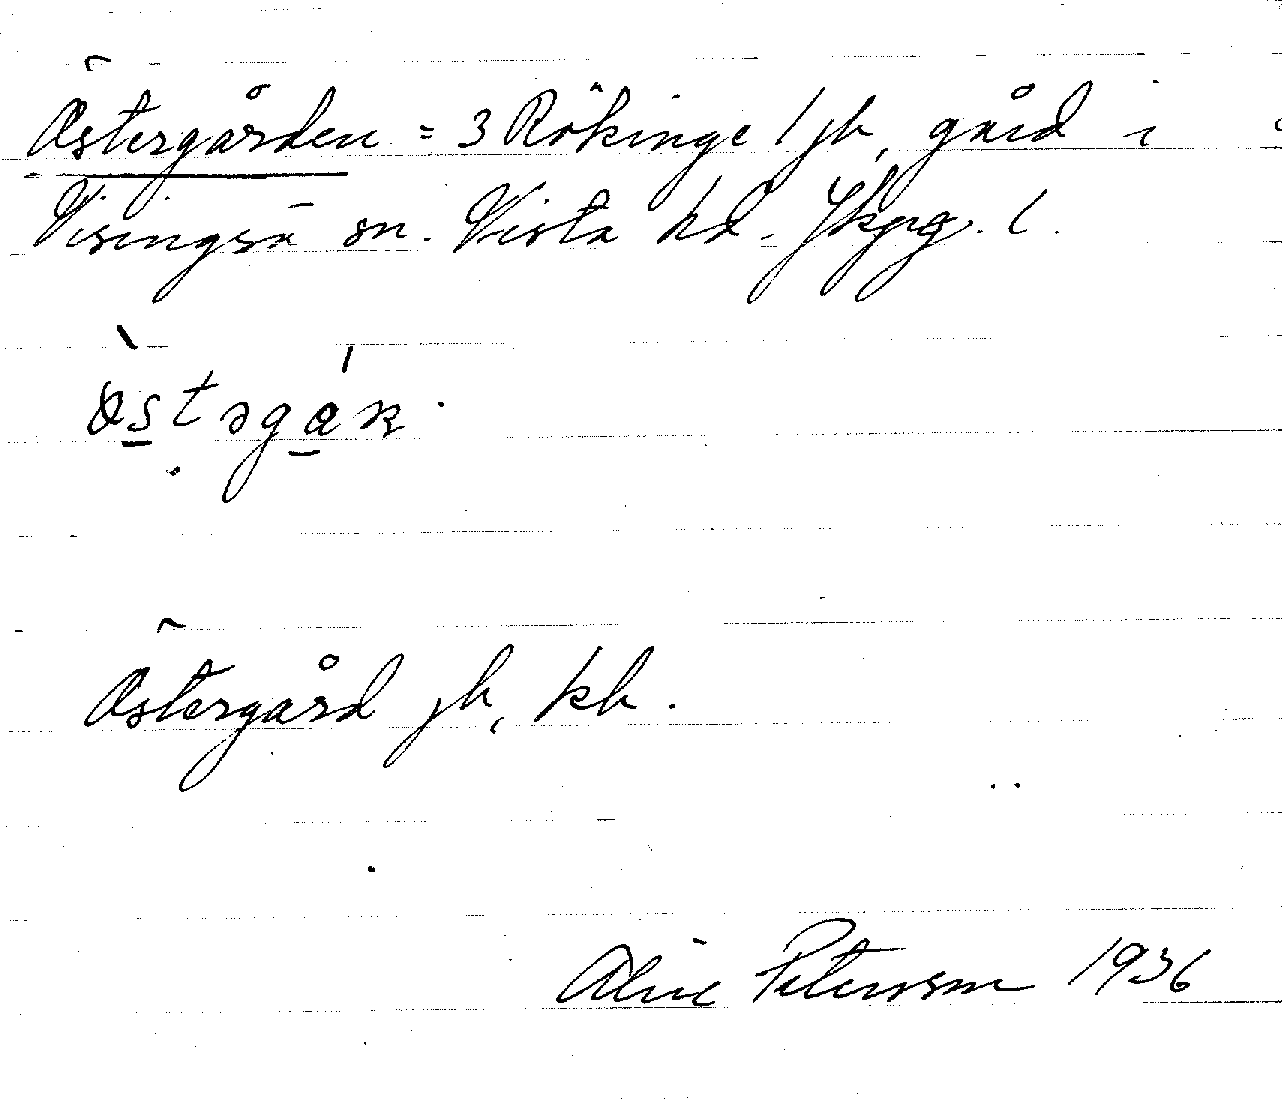 Östergården = 3 Rökinge 1 jb, gård i
Visingsö sn. Vista hd. Jkpg. l.
Östergård jb, kb.
Petersson 1936